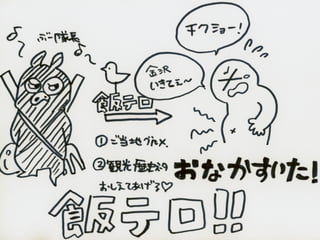 ぶー隊長
チクショー!
金沢
いきてぇ〜
飯テロ
① ご当地グルメ
② 観光歴史ネタ
おしえてあげる♡
おなかすいた!
飯テロ!!